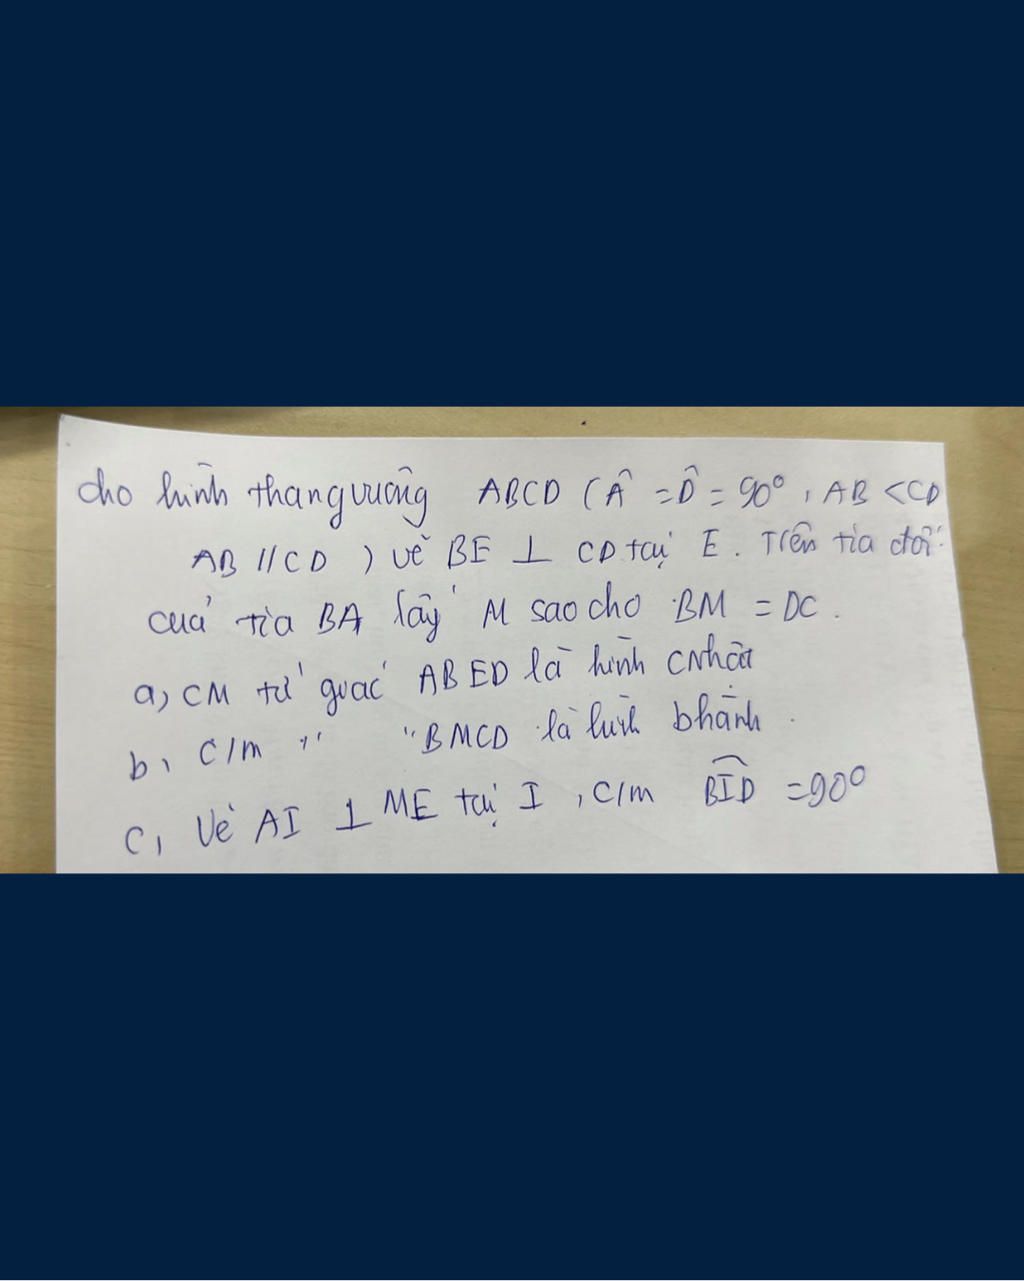 cho hình thang vuông ABCD ( Â = D̂ = 90° , AB < CD
AB // CD ) vẽ BE ⊥ CD tại E. Trên tia đối
của tia BA lấy M sao cho BM = DC.
a, CM tứ giác ABED là hình cNhật
b, C/m " " BMCD là hình bhành.
C, Vẽ AI ⊥ ME tại I , C/m B͡ID = 90°